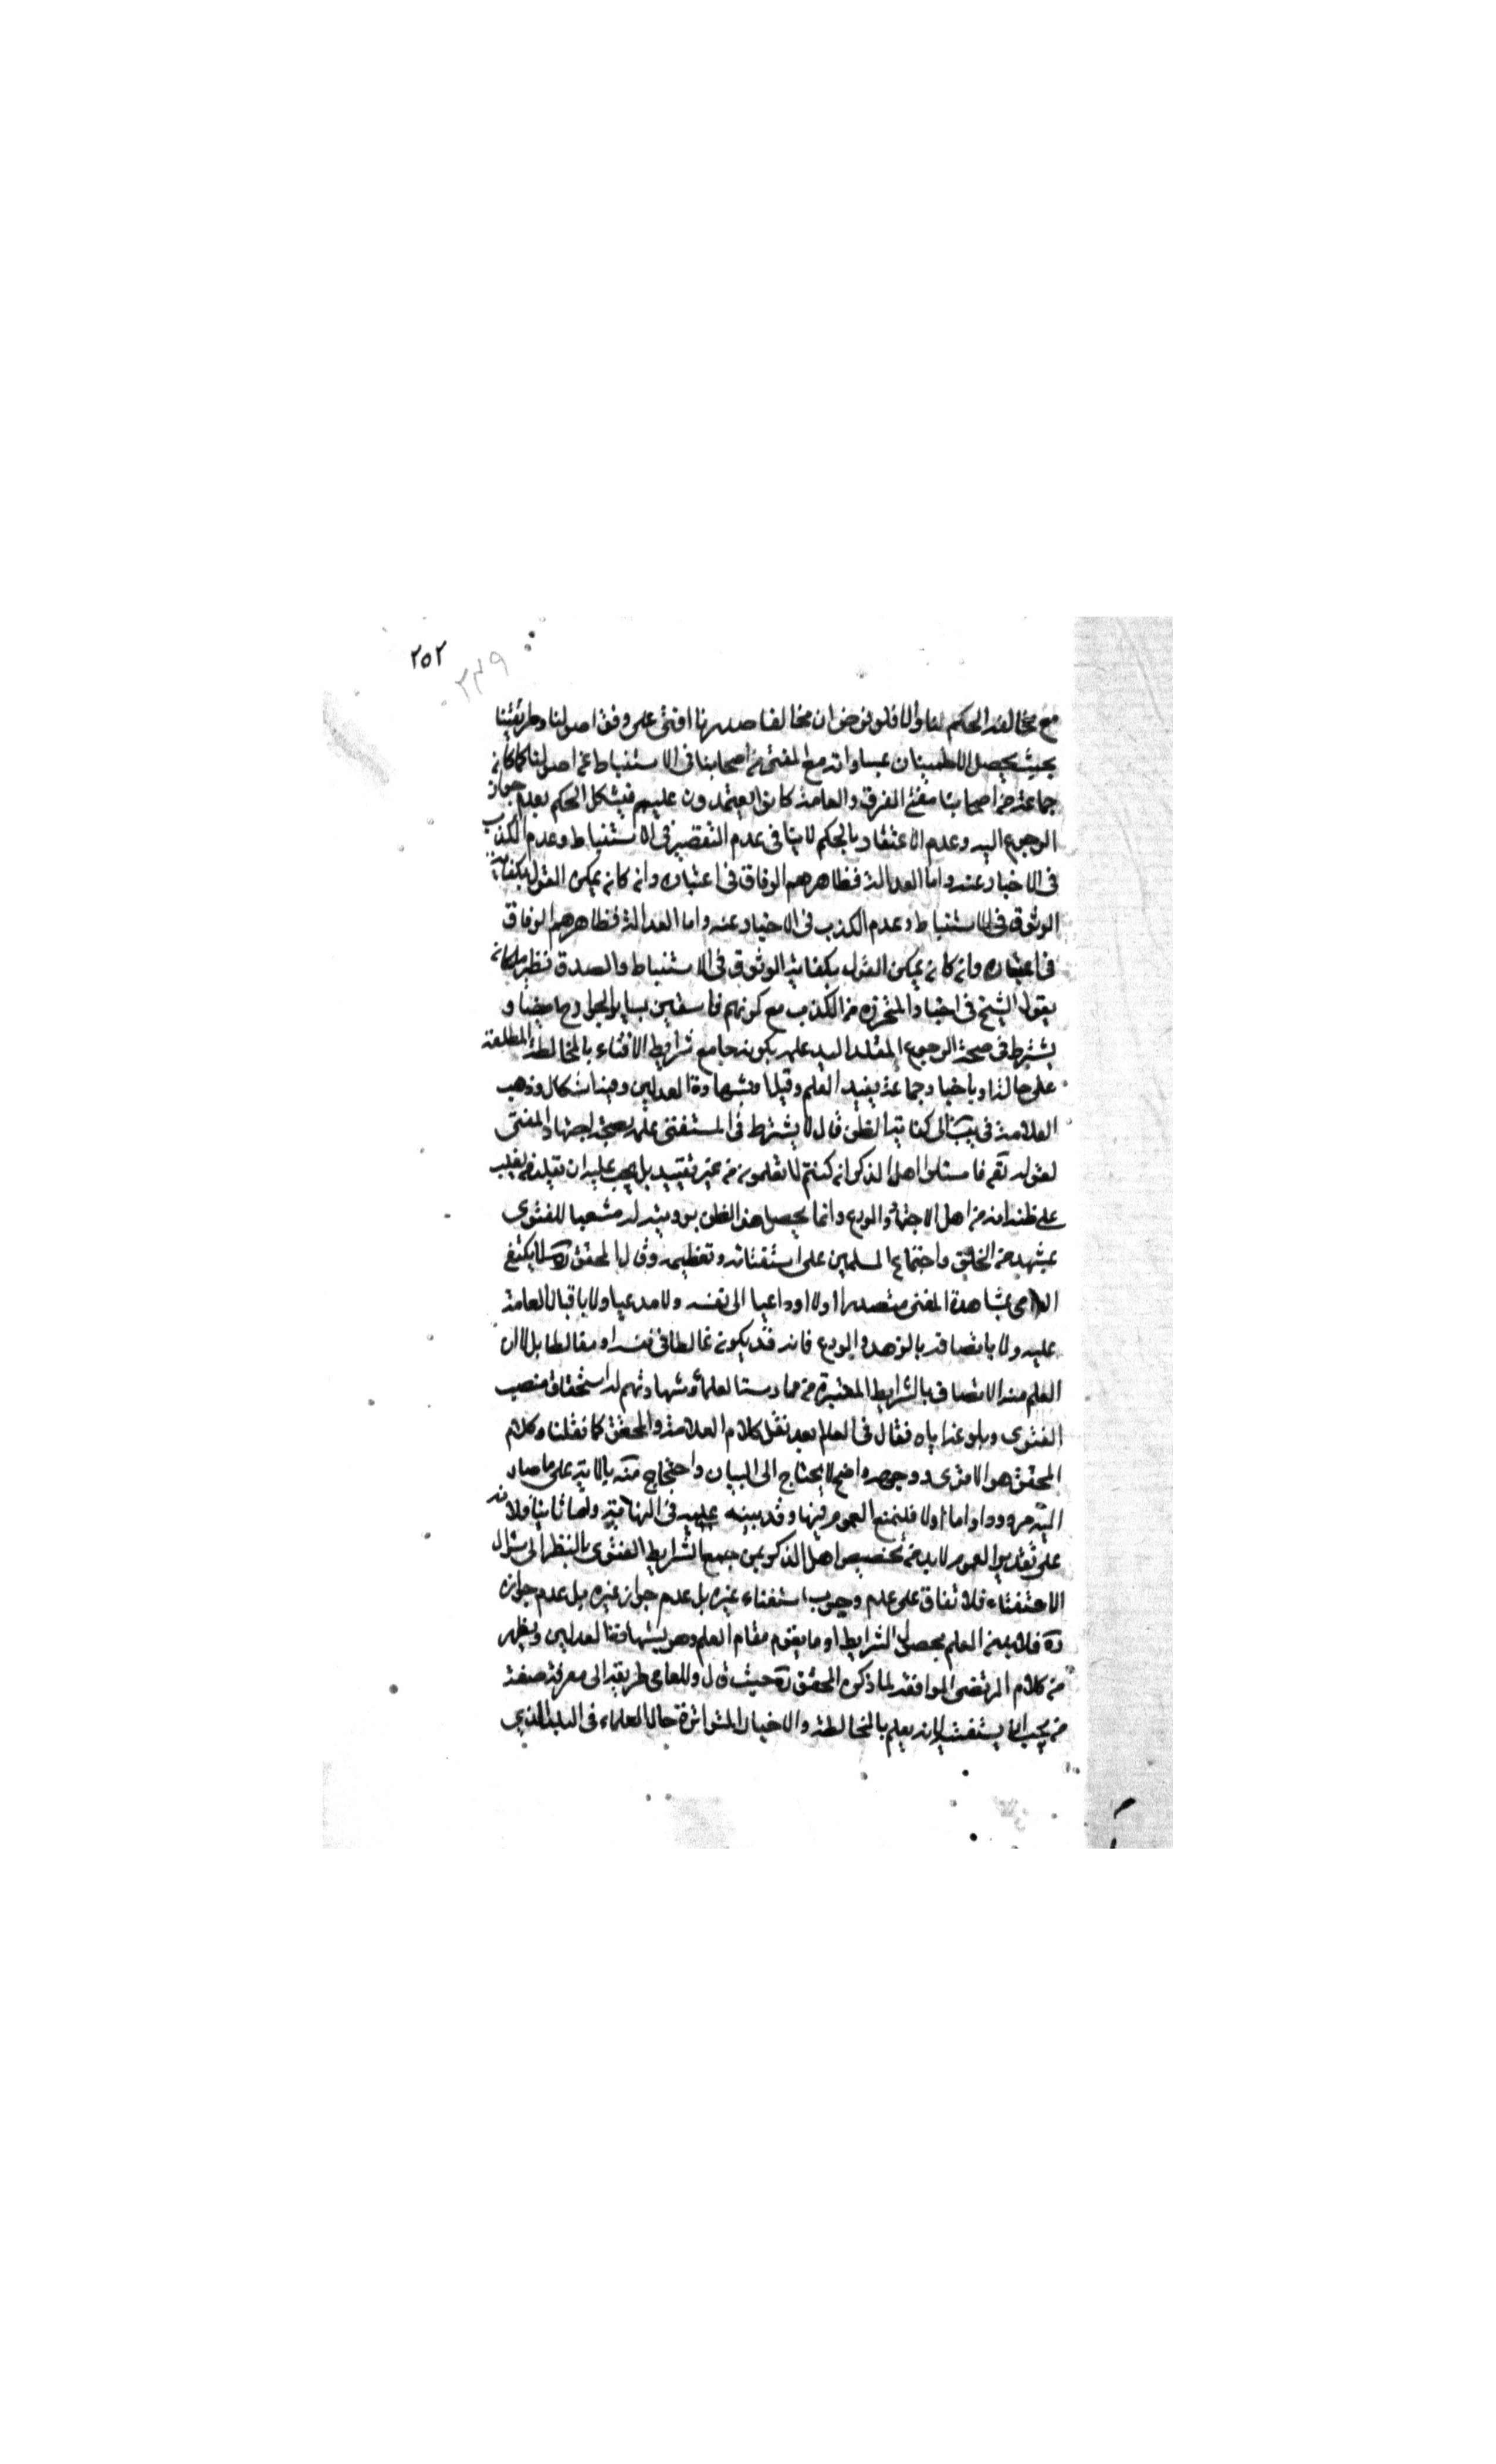 ٢٥٢
٢٤٩
مع مخالفة الحكم لنا والا فلو فرض ان مخالفا صدرنا افتى على وفق اصولنا وطريقتنا
بحيث يحصل الاطمينان بمساواته مع المفتى من اصحابنا فى الاستنباط عن اصولنا كما كان
جماعة من اصحابنا مفتى الفرق والعامة كانوا يعتمدون عليهم فيشكل الحكم بعدم جواز
الرجوع اليه وعدم الاعتقاد بالحكم لا ينافى عدم التقصير فى الاستنباط وعدم الكذب
فى الاخبار عنه واما العدالة فظاهرهم الوفاق فى اعتباره وان كان يمكن القول بكفاية
الوثوق فى الاستنباط وعدم الكذب فى الاخبار عنه واما العدالة فظاهرهم الوفاق
فى اعتباره وان كان يمكن القول بكفاية الوثوق فى الاستنباط والصدق نظير ما كان
يقول الشيخ فى اخبار المتحرزه من الكذب مع كونهم فاسقين بساير الجوارح ايضا و
يشترط فى صحة الرجوع المقلد اليه علمه بكونه جامع شرايط الافتاء بالمخالطة المطلعة
على حاله او باخبار جماعة يفيد العلم وقيل او بشهادة العدلين وفيه اشكال وذهب
العلامة فى يب الى كفاية الظن قال لا يشترط فى المستفتى علمه بصحة اجتهاد المفتى
لقوله تعم فاسئلوا اهل الذكر ان كنتم لا تعلمون من غير تقييد بل يجب عليه ان يقلد من يغلب
على ظنه انه من اهل الاجتهاد والورع وانما يحصل هذا الظن برويته له منتصبا للفتوى
بمشهد من الخلق واجتماع المسلمين على استفتائه وتعظيمه وقال المحقق ره لا يكتفى
العامى بمشاهدة المفتى متصدرا ولا داعيا الى نفسه ولا مدعيا ولا باقبال العامة
عليه ولا باتصافه بالزهد والورع فانه قد يكون غالطا فى نفسه او مغالطا بل لا ان
العلم منه الاتصاف بالشرايط المعتبرة من ممارسته العلماء وشهادتهم له استحقاق منصب
الفتوى وبلوغه اياه فقال فى المعالم بعد نقل كلام العلامة والمحقق كما نقلنا وكلام
المحقق هو الاقوى ووجهه واضح لا يحتاج الى البيان واحتجاج مة بالاية على ما صار
اليه مردود اما اولا فلمنع العموم فيها وقد نبه عليه فى النهاية واما ثانيا فلانه
على تقدير العموم لا بد من تخصيص اهل الذكر بمن جمع شرايط الفتوى بالنظر الى سؤال
الاستفتاء فلاتفاق على عدم وجوب استفتاء غيره بل عدم جوازه
ره فلا بد من العلم بحصول الشرايط او ما يقوم مقام العلم وهو شهادة العدلين ويظهر
من كلام المرتضى الموافقة لما ذكره المحقق ره حيث قال وللعامى طريق الى معرفة صفة
من يجب ان يستفتيه لانه يعلم بالمخالطة والاخبار المتواترة حال العلماء فى البلد الذى